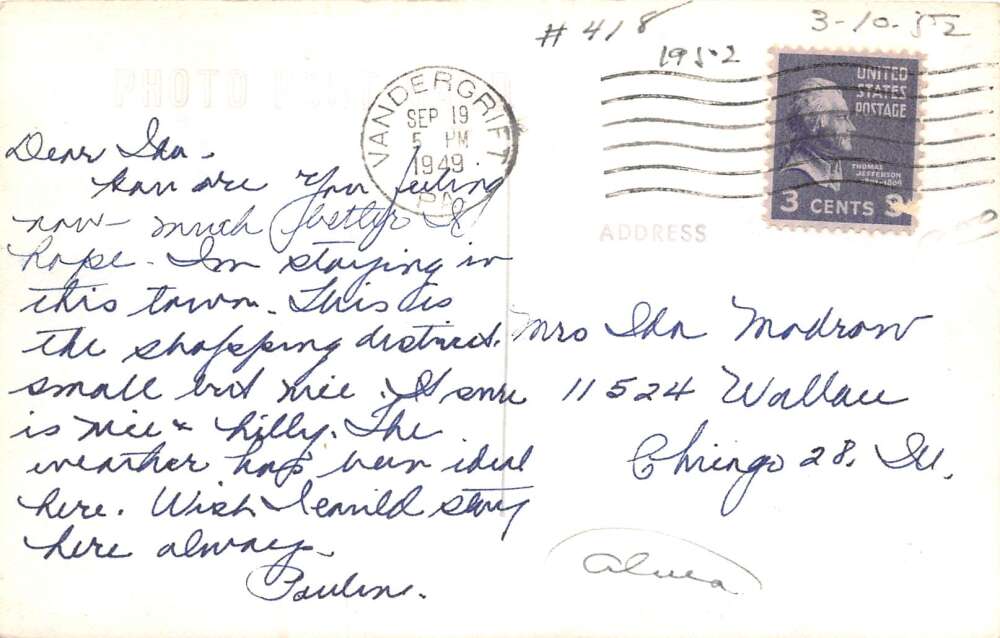 # 418
3-10-52
1952
PHOTO POST CARD
VANDERGRIFT
SEP 19
5 PM
1949
PA
UNITED
STATES
POSTAGE
THOMAS
JEFFERSON
1801-1809
3 CENTS 3
ADDRESS
Dear Ida -
How are you feeling
now - much better I
hope. I'm staying in
this town. This is
the shopping district.
small but nice. It sure
is nice & hilly. The
weather has been ideal
here. Wish I could stay
here always.
Pauline.
Mrs Ida Modrow
11524 Wallace
Chicago 28, Ill.